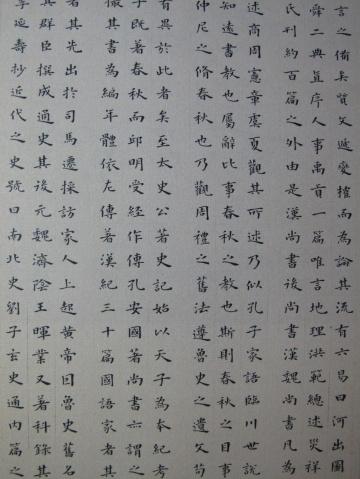 言之備矣質文遞變擅而為論其流有六易曰河出圖
舜二典直序人事禹貢一篇唯言地理洪範總述災祥
氏刊約百篇之外由是漢尚書後尚書漢魏尚書凡為
述商周憲章虞夏觀其所述乃似孔子家語臨川世說
知遠書教也屬辭比事春秋之教也斯則春秋之目事
仲尼之脩春秋也乃觀周禮之舊法遵魯史之遺文苟
有異於此者矣至太史公著史記始以天子為紀考
子既著春秋而邱明受經作傳孔安國著尚書六謂之
其書為編年體依左傳著漢紀三十篇國語家者其
者其先出於司馬遷採訪家人上起黃帝曰魯史舊名
其群臣撰成通史其後元魏濟陰王暉業又著科錄其
延壽抄近代之史號曰南北史劉子玄史通內篇之